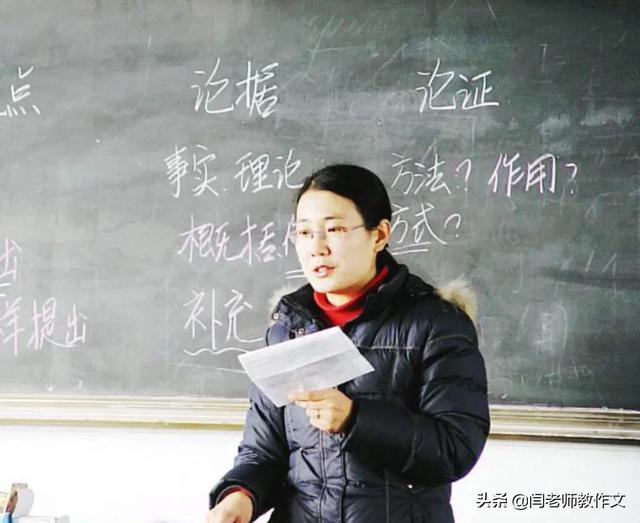 点 论据 论证
事实 理论 方法？作用？
概括 方式？
出
补充
样提出
头条 @闫老师教作文